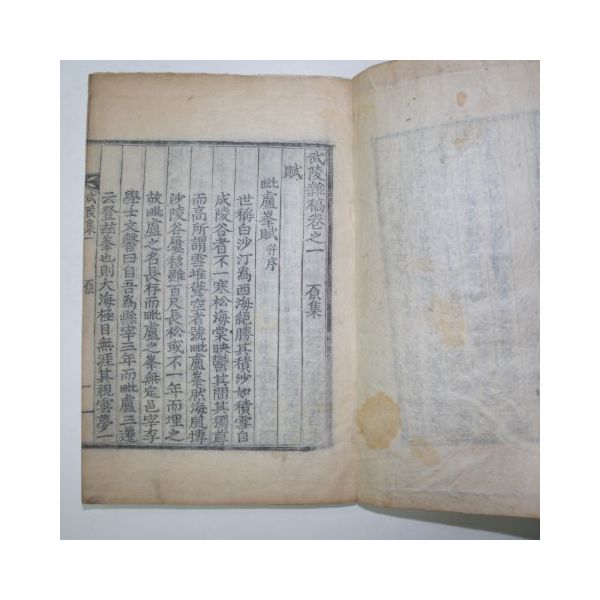 武陵雜稿卷之一　原集
賦
毗盧峯賦 幷序
世稱白沙汀為西海絕勝其積沙如積雪自
成陵谷者不一寒松海棠映鬱其間其獨尊
而高所謂雲堆聳空者號毗盧峯然海風博
沙陵谷屢移雖百尺長松或不一年而埋之
故毗盧之名長存而毗盧之峯無定邑宰李
學士文馨曰自吾為縣宰三年而毗盧三遷
云登玆峯也則大海極目無涯其視雲夢一
武陵集一　原　一